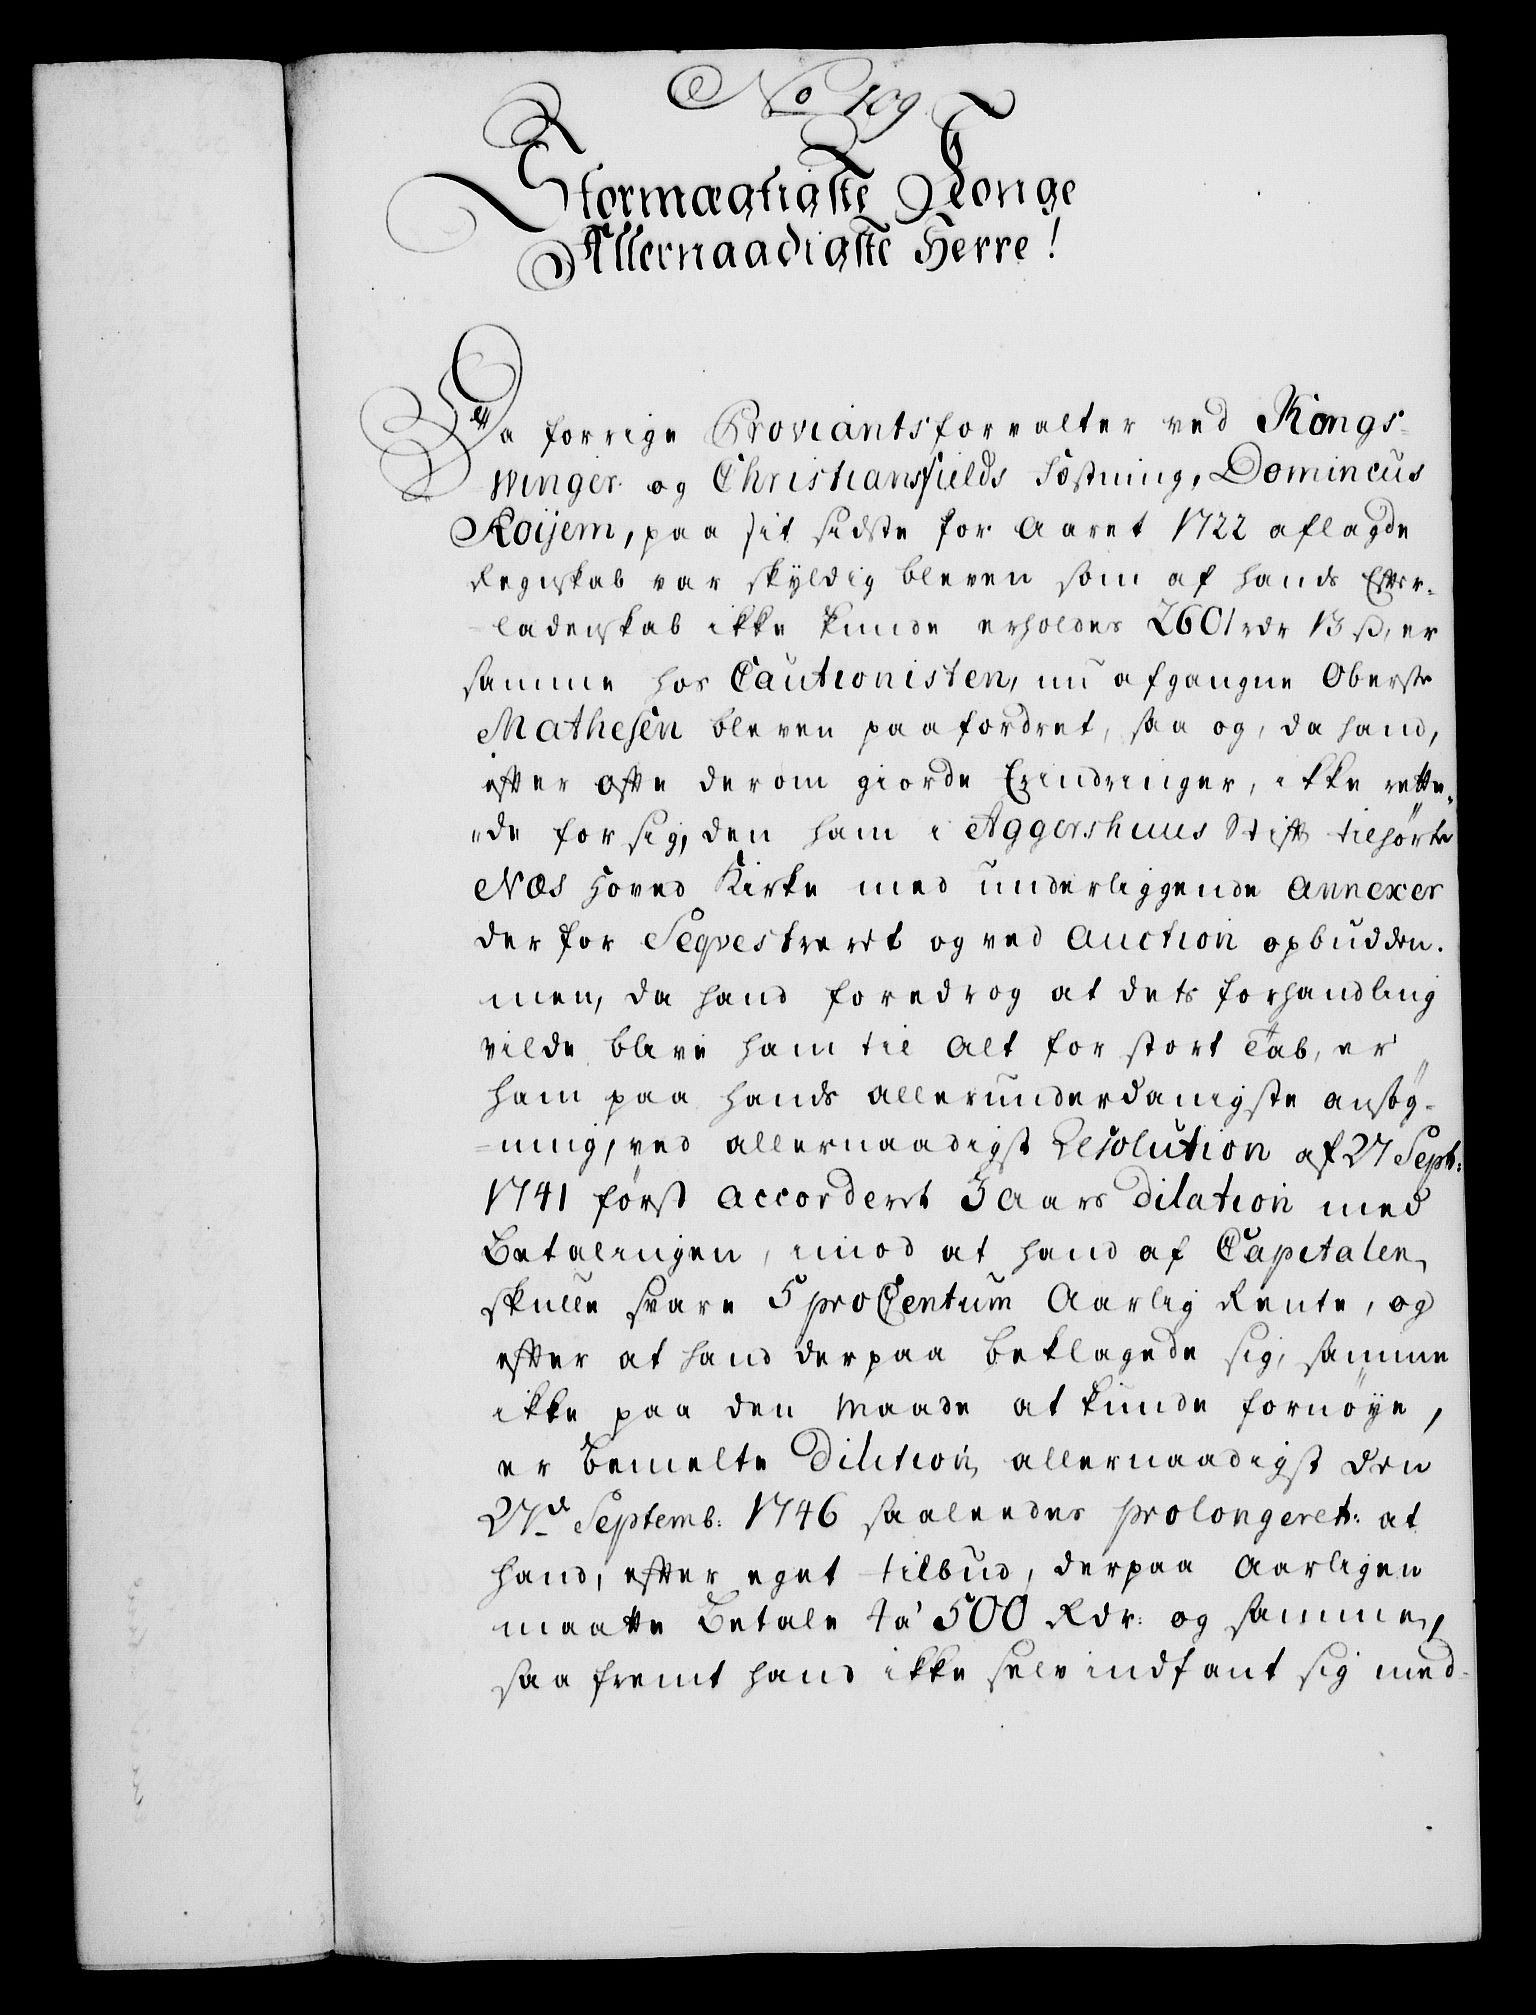 No 109
Stormægtigste Konge
Allernaadigste Herre!
Da forrige Proviantsforvalter ved Kongs-
winger og Christiansfields Fæstning, Domincus
Roijem, paa sit sidste for Aaret 1722 aflagde
Regnskab var skyldig bleven som af hands Efter-
-ladenskab ikke kunde erholdes 2601 rdr 13 ß, er
samme hos Cautionisten, nu afgangne Oberste
Mathesen bleven paafordret, saa og, da hand,
efter ofte derom giorde Erindringer, ikke rette-
-de for sig, den ham i Aggershuus Stift tilhørte
Næs Hoved Kirke med underliggende Annexer
derfor Seqvestreret og ved Auction opbudden.
men, da hand foredrog at dets forhandling
vilde blive ham til alt for stort Tab, er
ham paa hands allerunderdanigste ansøg-
-ning, ved allernaadigst Resolution af 27 Septb:
1741 først accorderet 3 Aars Dilation med
Betalingen, imod at hand af Capitalen
skulle svare 5 pro Centum Aarlig Rente, og
efter at hand derpaa beklagede sig, samme
ikke paa den Maade at kunde fornøye,
er bemelte Dilition allernaadigst den
27d Septemb: 1746 saaleedes prolongeret: at
hand, efter eget tilbud, derpaa Aarligen
maatte Betale 4 a 500 Rdr: og samme,
saa fremt hand ikke selv indfant sig med-